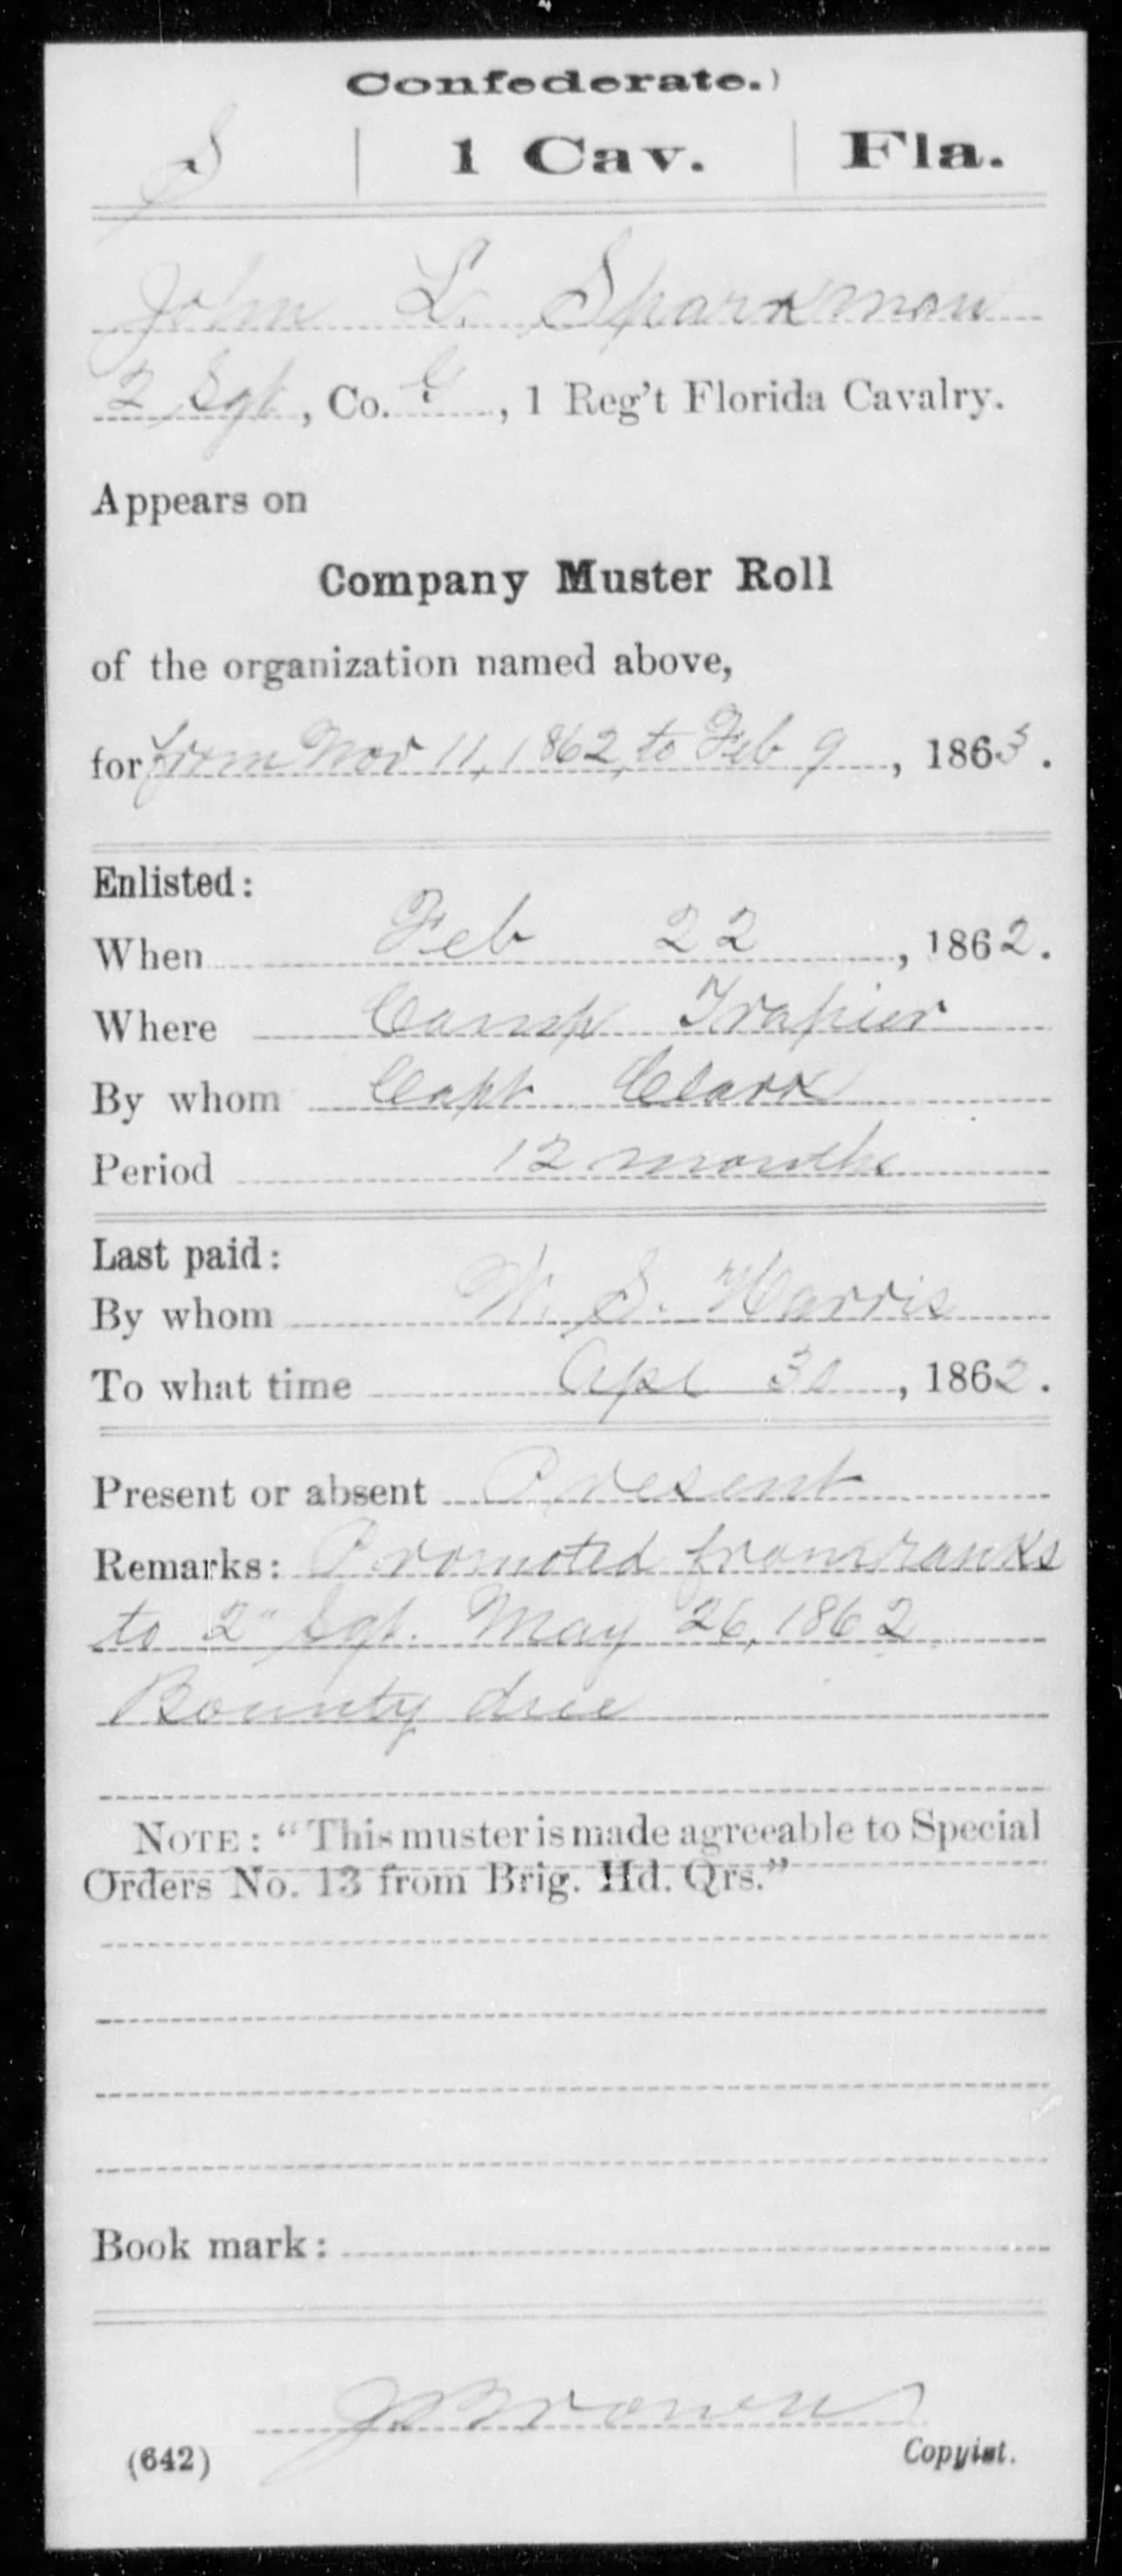 Confederate.)
S | 1 Cav. | Fla.
John L. Sparkman
2 Sgt, Co. G, 1 Reg't Florida Cavalry.
Appears on
Company Muster Roll
of the organization named above,
for from Nov 11, 1862, to Feb 9, 1863.
Enlisted:
When Feb 22, 1862.
Where Camp Trapier
By whom Capt Clark
Period 12 months
Last paid:
By whom W. S. Harris
To what time Apl 30, 1862.
Present or absent Present
Remarks: Promoted from ranks
to 2" Sgt. May 26, 1862
Bounty due
NOTE: "This muster is made agreeable to Special
Orders No. 13 from Brig. Hd. Qrs."
Book mark:
Brown
(642) Copyist.